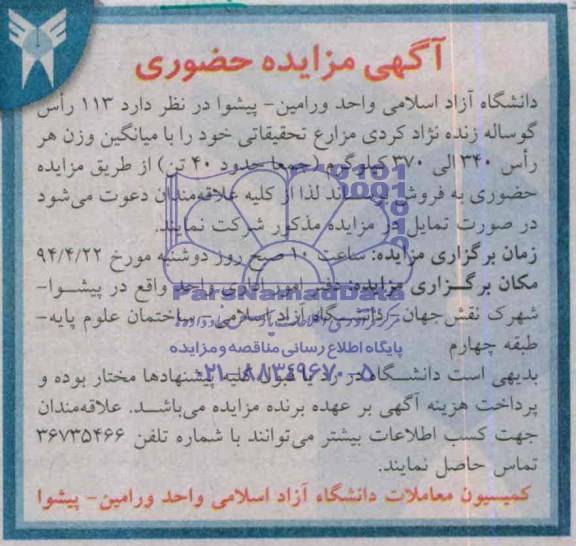 آگهی مزایده حضوری
دانشگاه آزاد اسلامی واحد ورامین- پیشوا در نظر دارد ۱۱۳ رأس
گوساله زنده نژاد کردی مزارع تحقیقاتی خود را با میانگین وزن هر
رأس ۳۴۰ الی ۳۷۰ کیلوگرم (جمعا حدود ۴۰ تن) از طریق مزایده
حضوری به فروش برساند لذا از کلیه علاقه‌مندان دعوت می‌شود
در صورت تمایل در مزایده مذکور شرکت نمایند.
زمان برگزاری مزایده: ساعت ۱۰ صبح روز دوشنبه مورخ ۹۴/۴/۲۲
مکان برگزاری مزایده: دفتر امور اداری واحد واقع در پیشوا-
ParsNamadData
شهرک نقش جهان- دانشگاه آزاد اسلامی- ساختمان علوم پایه-
طبقه چهارم
پایگاه اطلاع رسانی مناقصه و مزایده
بدیهی است دانشگاه در رد یا قبول کلیه پیشنهادها مختار بوده و
۰۲۱-۸۸۳۴۹۶۷۰-۵
پرداخت هزینه آگهی بر عهده برنده مزایده می‌باشد. علاقه‌مندان
جهت کسب اطلاعات بیشتر می‌توانند با شماره تلفن ۳۶۷۳۵۴۶۶
تماس حاصل نمایند.
کمیسیون معاملات دانشگاه آزاد اسلامی واحد ورامین- پیشوا